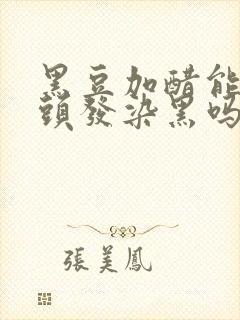 黑豆加醋能
頭發染黑吗
張美鳳